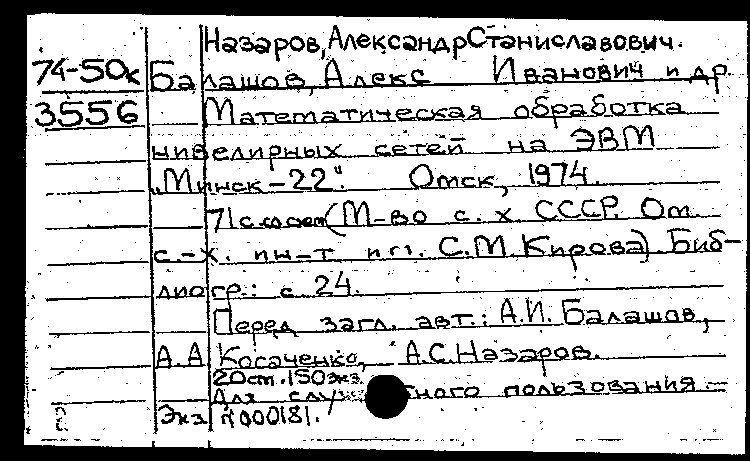 Назаров, Александр Станиславович.
74-50к Балашов, Алекс Иванович и др.
3556 Математическая обработка
нивелирных сетей на ЭВМ
„Минск-22". Омск, 1974.
71 с. со сх. (М-во с. х. СССР. Ом.
с.-х. ин-т им. С.М. Кирова) Биб-
лиогр.: с. 24.
Перед загл. авт.: А.И. Балашов,
А.А. Косаченко, А.С. Назаров.
20ст. 150экз.
Для пользования
Экз №000181.